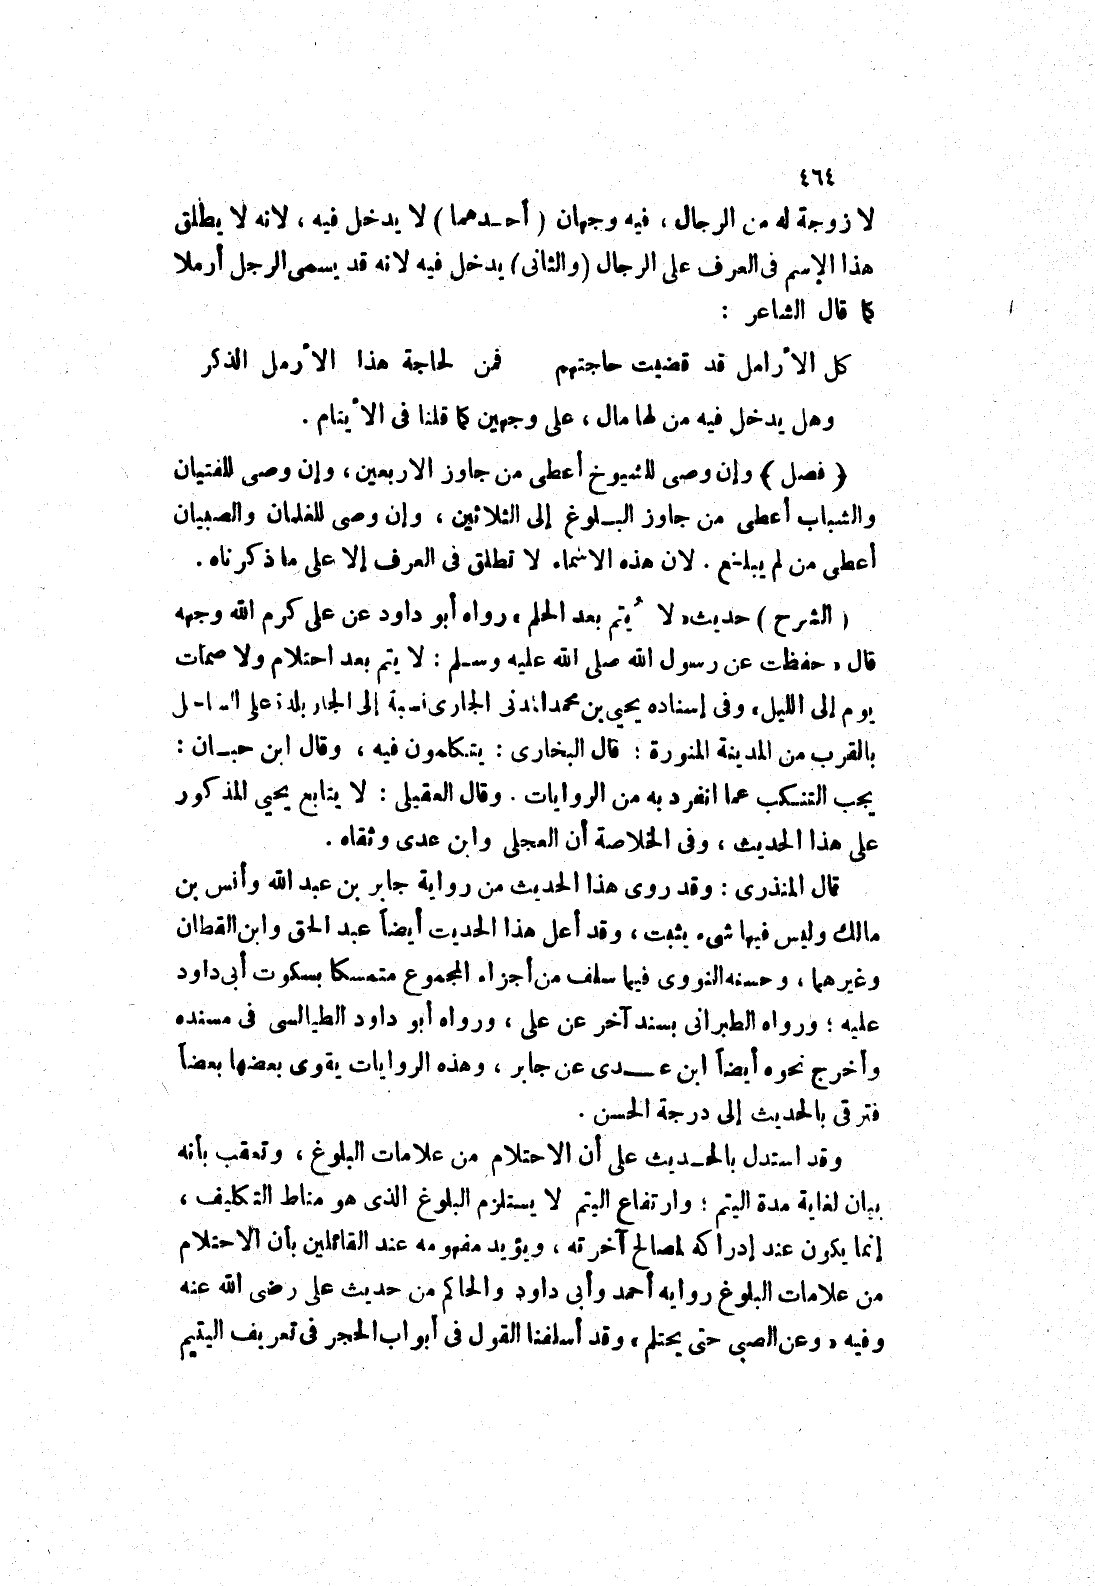 ٤٦٤
لا زوجة له من الرجال ، فيه وجهان ( أحدهما ) لا يدخل فيه ، لانه لا يطلق
هذا الإسم فى العرف على الرجال (والثانى) يدخل فيه لانه قد يسمى الرجل أرملا
كما قال الشاعر :
كل الأرامل قد قضيت حاجتهم فمن لحاجة هذا الأرمل الذكر
وهل يدخل فيه من لها مال ، على وجهين كما قلنا فى الأيتام .
﴿ فصل ﴾ وإن وصى للشيوخ أعطى من جاوز الاربعين ، وإن وصى للفتيان
والشباب أعطى من جاوز البلوغ إلى الثلاثين ، وإن وصى للغلمان والصبيان
أعطى من لم يبلغ . لان هذه الاسماء لا تطلق فى العرف إلا على ما ذكرناه .
( الشرح ) حديث « لا يُتم بعد الحلم » رواه أبو داود عن على كرم الله وجهه
قال « حفظت عن رسول الله صلى الله عليه وسلم : لا يتم بعد احتلام ولا صمات
يوم إلى الليل » وفى إسناده يحيى بن محمد المدنى الجارى نسبة إلى الجار بلدة على الساحل
بالقرب من المدينة المنورة : قال البخارى : يتكلمون فيه ، وقال ابن حبان :
يجب التنكب عما انفرد به من الروايات . وقال العقيلى : لا يتابع يحيى المذكور
على هذا الحديث ، وفى الخلاصة أن العجلى وابن عدى وثقاه .
قال المنذرى : وقد روى هذا الحديث من رواية جابر بن عبد الله وأنس بن
مالك وليس فيها شىء يثبت ، وقد أعل هذا الحديث أيضاً عبد الحق وابن القطان
وغيرهما ، وحسنه النووى فيما سلف من أجزاء المجموع متمسكا بسكوت أبى داود
عليه ؛ ورواه الطبرانى بسند آخر عن على ، ورواه أبو داود الطيالسى فى مسنده
وأخرج نحوه أيضاً ابن عدى عن جابر ، وهذه الروايات يقوى بعضها بعضاً
فترقى بالحديث إلى درجة الحسن .
وقد استدل بالحديث على أن الاحتلام من علامات البلوغ ، وتعقب بأنه
بيان لغاية مدة اليتم ؛ وارتفاع اليتم لا يستلزم البلوغ الذى هو مناط التكليف ،
إنما يكون عند إدراكه لمصالح آخرته ، ويؤيد مفهومه عند القائلين بأن الاحتلام
من علامات البلوغ روايه أحمد وأبى داود والحاكم من حديث على رضى الله عنه
وفيه « وعن الصبى حتى يحتلم » وقد أسلفنا القول فى أبواب الحجر فى تعريف اليتيم